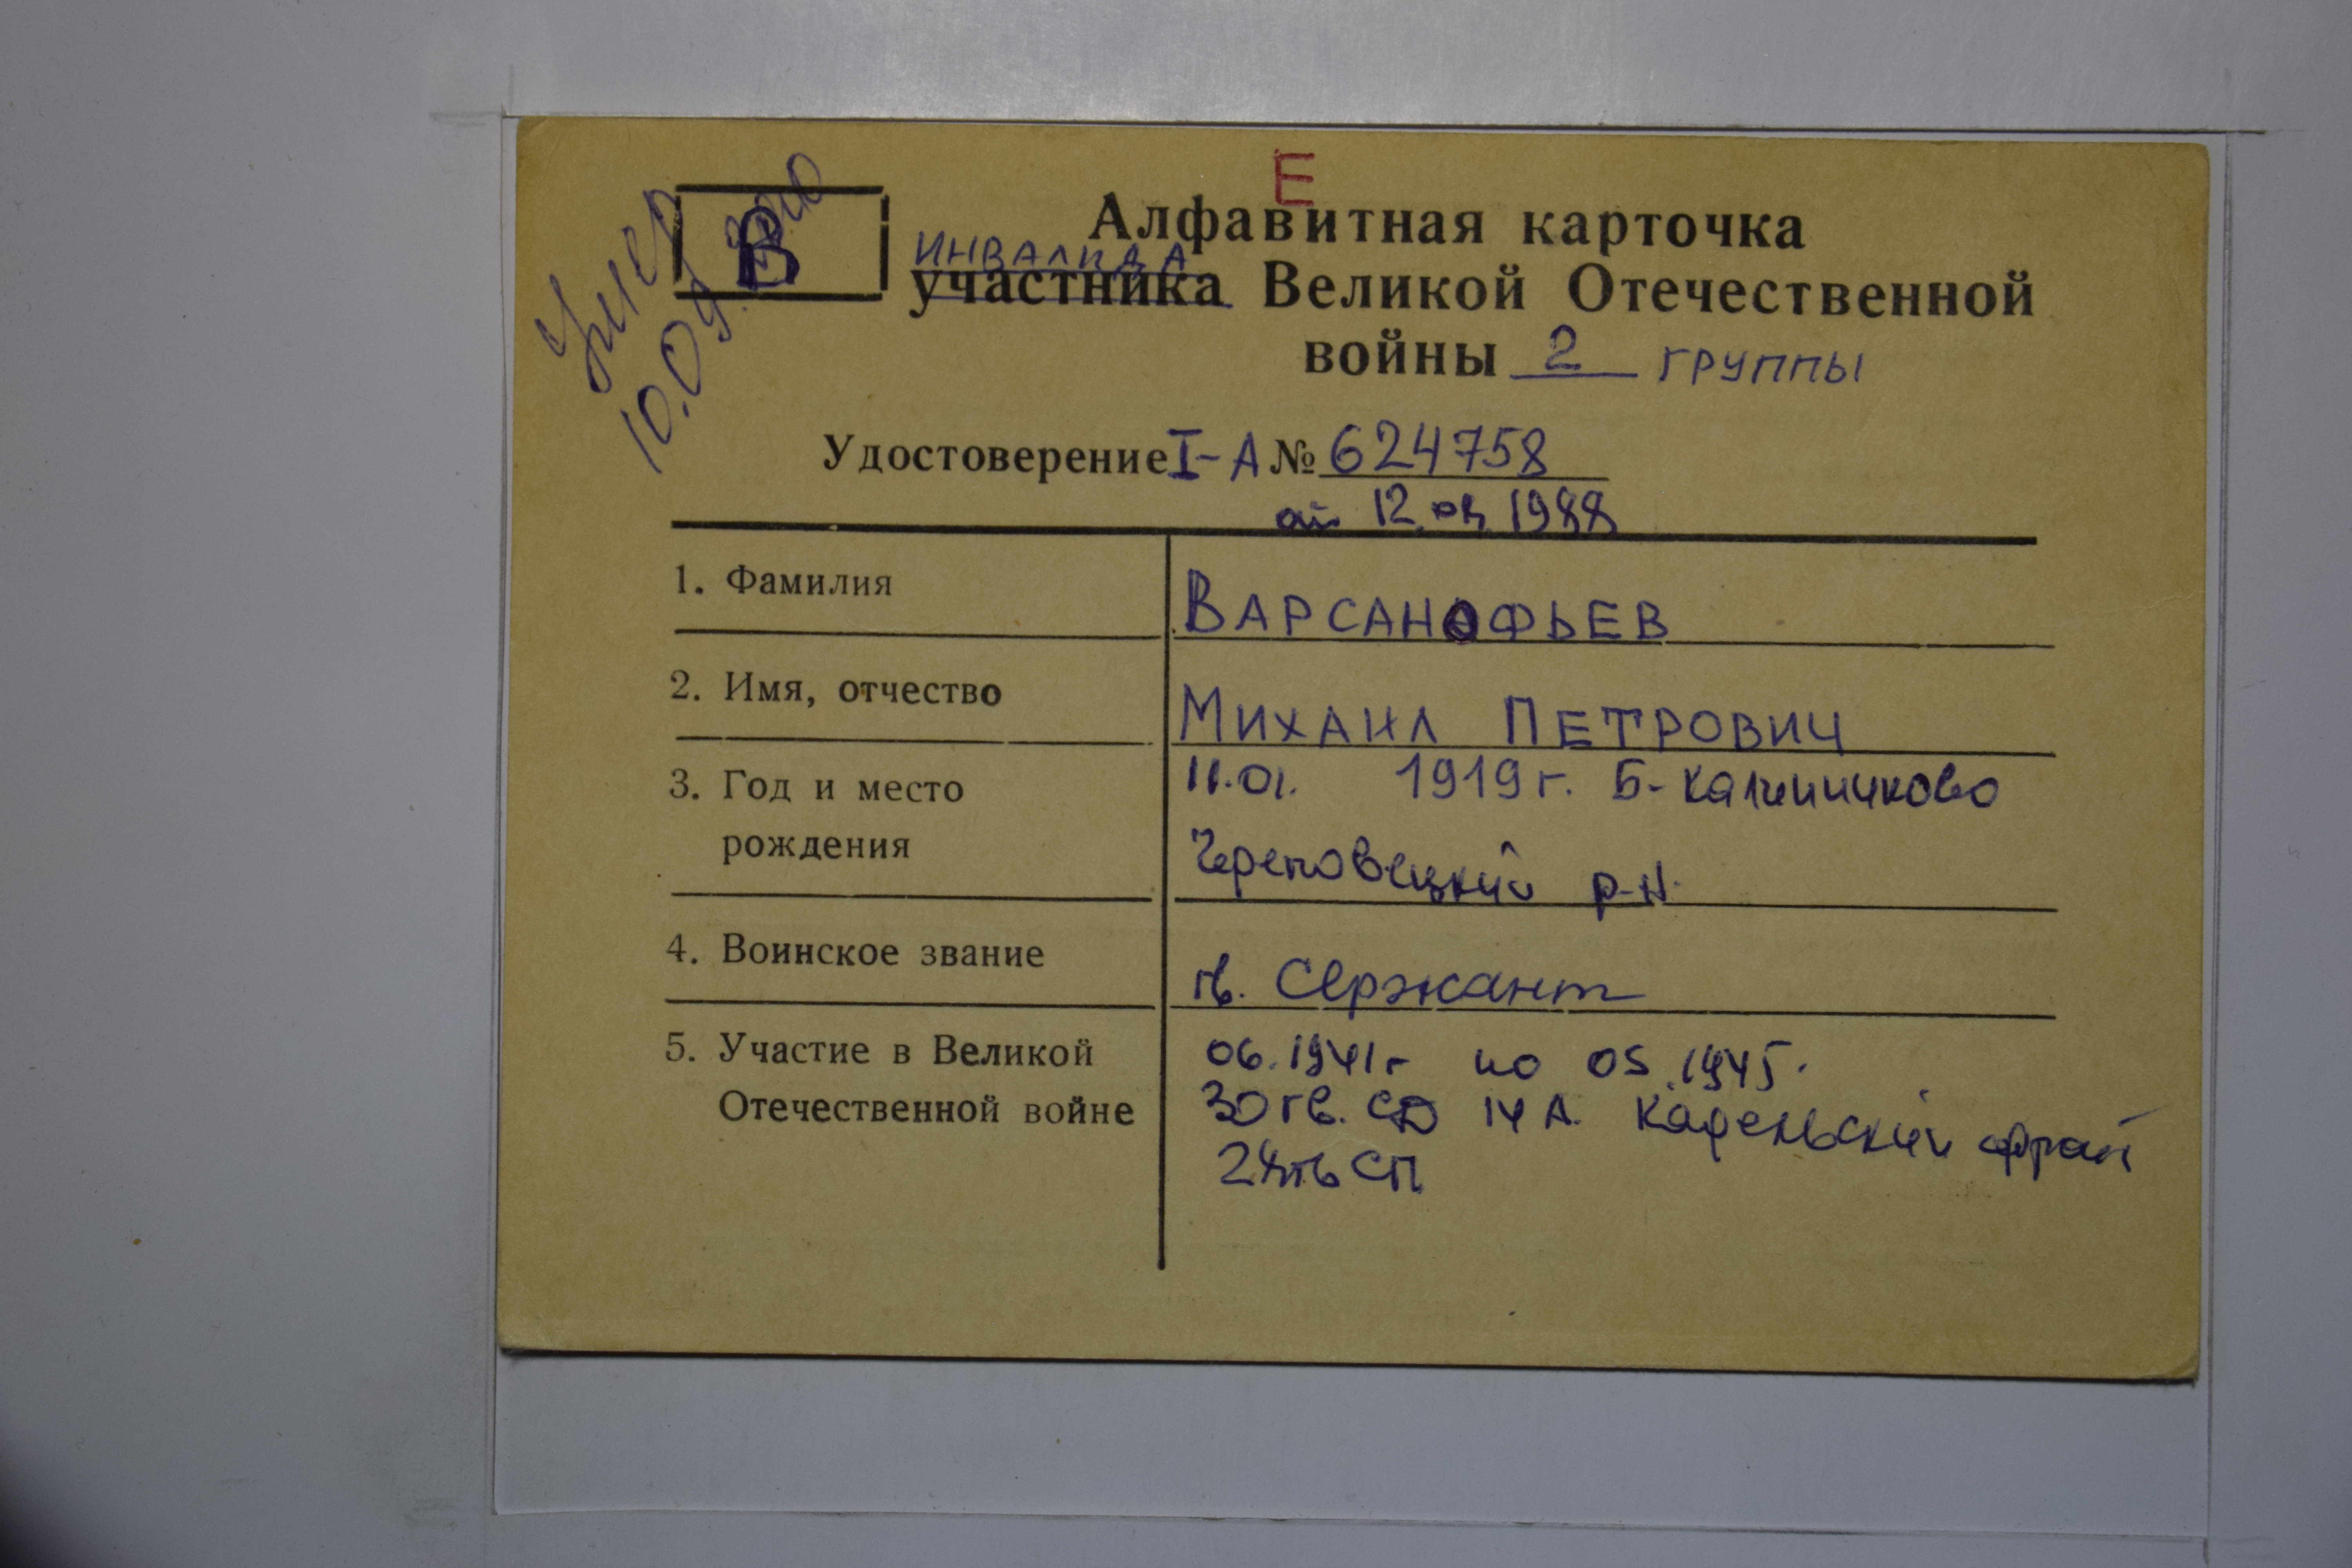 Е
Умер
10.09.
В
Алфавитная карточка
ИНВАЛИДА
участника Великой Отечественной
войны 2 ГРУППЫ
Удостоверение I-А № 624758
от 12 1988
1. Фамилия ВАРСАНОФЬЕВ
2. Имя, отчество МИХАИЛ ПЕТРОВИЧ
3. Год и место 11.01. 1919 г. Б-Калинниково
рождения Череповецкий р-н
4. Воинское звание гв. Сержант
5. Участие в Великой 06.1941г по 05.1945.
Отечественной войне 30 гв. СД 14 А.
СП